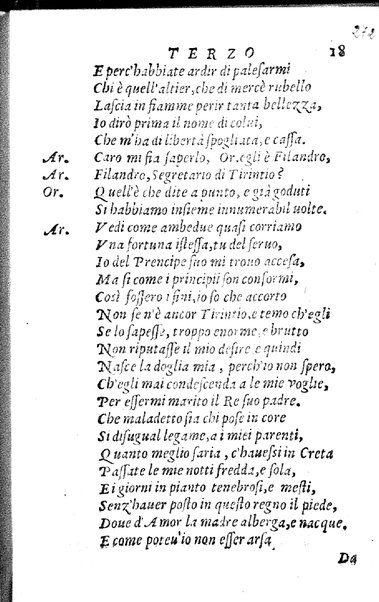 212
TERZO 18
E perc'habbiate ardir di palesarmi
Chi è quell'altier, che di mercè rubello
Lascia in fiamme perir tanta bellezza,
Io dirò prima il nome di colui,
Che m'ha di libertà spogliata, e cassa.
Ar. Caro mi fia saperlo, Or. egli è Filandro,
Ar. Filandro, Segretario di Tirintio?
Or. Quell'è che dite a punto, e già goduti
Si habbiamo insieme innumerabil uolte.
Ar. Vedi come ambedue quasi corriamo
Vna fortuna istessa, tu del seruo,
Io del Prencipe suo mi trouo accesa,
Ma si come i principii son conformi,
Così fossero i fini, io so che accorto
Non se n'è ancor Tirintio, e temo ch'egli
Se lo sapesse, troppo enorme, e brutto
Non riputasse il mio desire, e quindi
Nasce la doglia mia, perch'io non spero,
Ch'egli mai condescenda a le mie voglie,
Per essermi marito il Re suo padre.
Che maladetto sia chi pose in core
Si disugual legame, a i miei parenti,
Quanto meglio saria, c'hauessi in Creta
Passate le mie notti fredda, e sola,
E i giorni in pianto tenebrosi, e mesti,
Senz'hauer posto in questo regno il piede,
Doue d'Amor la madre alberga, e nacque.
E come poteu'io non esser arsa
Da